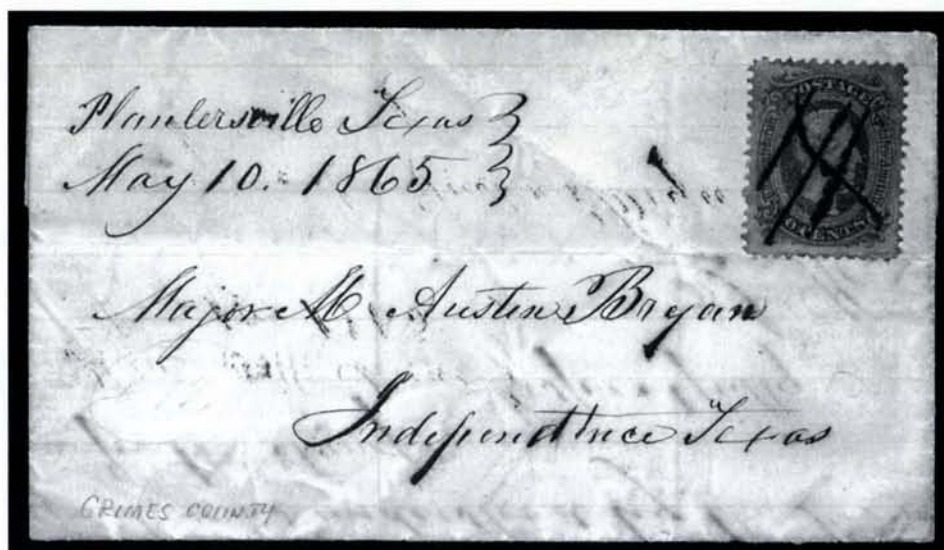 Plantersville Texas
May 10. 1865
POSTAGE
Major M. Austin Bryan
Independence Texas
GRIMES COUNTY